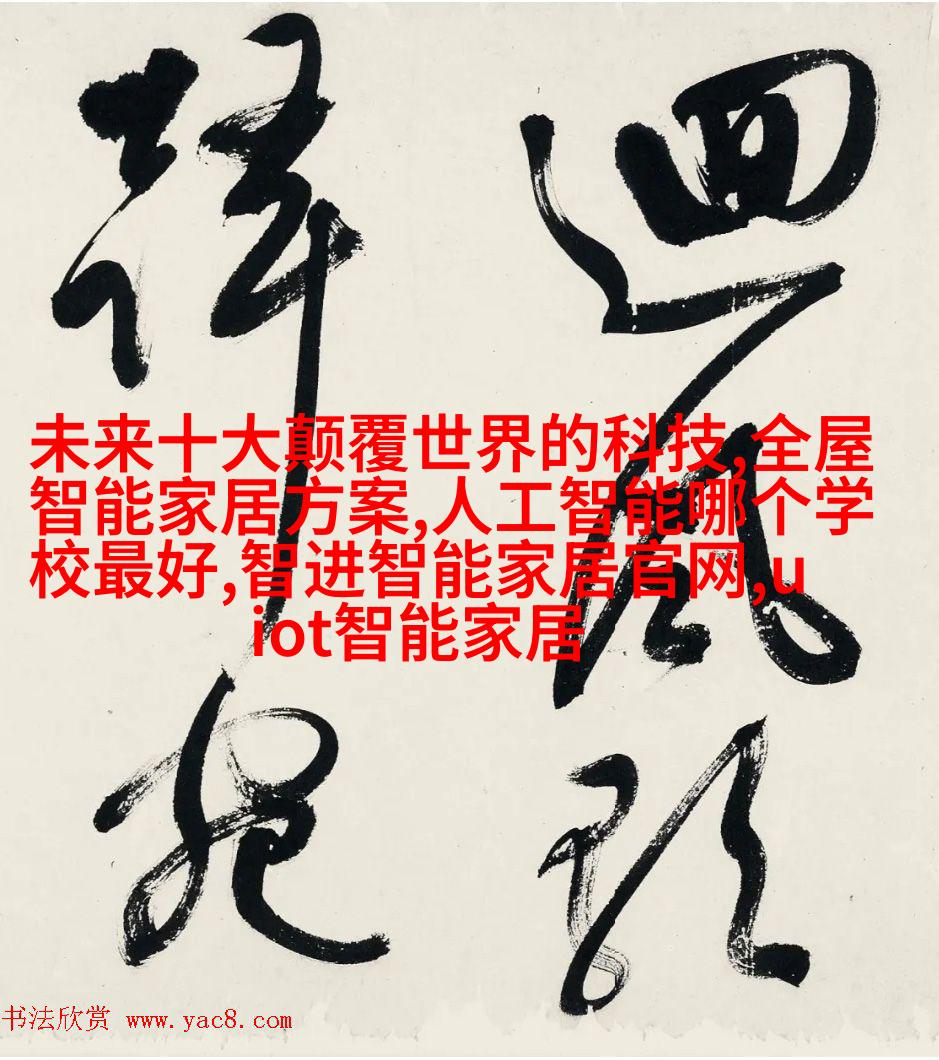 迴風頭
未来十大颠覆世界的科技,全屋
智能家居方案,人工智能哪个学
校最好,智进智能家居官网,u
iot智能家居
书法欣赏 www.yac8.com